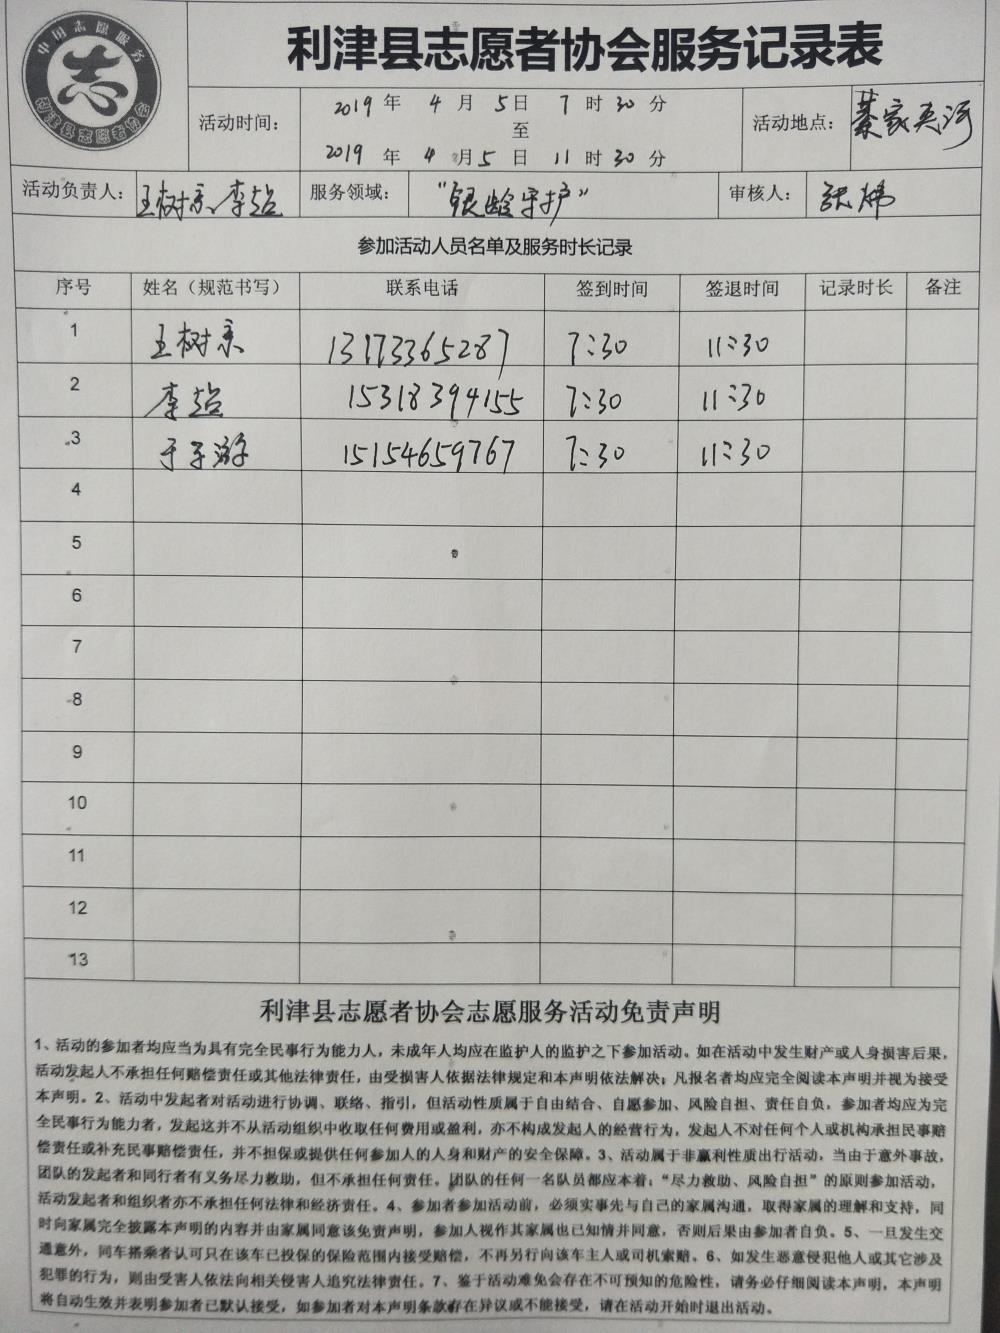 中国志愿服务
志
利津县志愿者协会
利津县志愿者协会服务记录表
活动时间：
2019 年 4 月 5 日 7 时 30 分
至
2019 年 4 月 5 日 11 时 30 分
活动地点： 綦家夹河
活动负责人： 王树 李超 服务领域： “银龄守护” 审核人： 张炜
参加活动人员名单及服务时长记录
序号 姓名（规范书写） 联系电话 签到时间 签退时间 记录时长 备注
1 王树 13173365287 7:30 11:30
2 李超 15318394155 7:30 11:30
3 于子游 15154659767 7:30 11:30
4
5
6
7
8
9
10
11
12
13
利津县志愿者协会志愿服务活动免责声明
1、活动的参加者均应当为具有完全民事行为能力人，未成年人均应在监护人的监护之下参加活动。如在活动中发生财产或人身损害后果，
活动发起人不承担任何赔偿责任或其他法律责任，由受损害人依据法律规定和本声明依法解决；凡报名者均应完全阅读本声明并视为接受
本声明。2、活动中发起者对活动进行协调、联络、指引，但活动性质属于自由结合、自愿参加、风险自担、责任自负，参加者均应为完
全民事行为能力者，发起这并不从活动组织中收取任何费用或盈利，亦不构成发起人的经营行为，发起人不对任何个人或机构承担民事赔
偿责任或补充民事赔偿责任，并不担保或提供任何参加人的人身和财产的安全保障。3、活动属于非赢利性质出行活动，当由于意外事故，
团队的发起者和同行者有义务尽力救助，但不承担任何责任。团队的任何一名队员都应本着：“尽力救助、风险自担”的原则参加活动，
活动发起者和组织者亦不承担任何法律和经济责任。4、参加者参加活动前，必须实事先与自己的家属沟通，取得家属的理解和支持，同
时向家属完全披露本声明的内容并由家属同意该免责声明，参加人视作其家属也已知情并同意，否则后果由参加者自负。5、一旦发生交
通意外，同车搭乘者认可只在该车已投保的保险范围内接受赔偿，不再另行向该车主人或司机索赔。6、如发生恶意侵犯他人或其它涉及
犯罪的行为，则由受害人依法向相关侵害人追究法律责任。7、鉴于活动难免会存在不可预知的危险性，请务必仔细阅读本声明，本声明
将自动生效并表明参加者已默认接受，如参加者对本声明条款存在异议或不能接受，请在活动开始时退出活动。